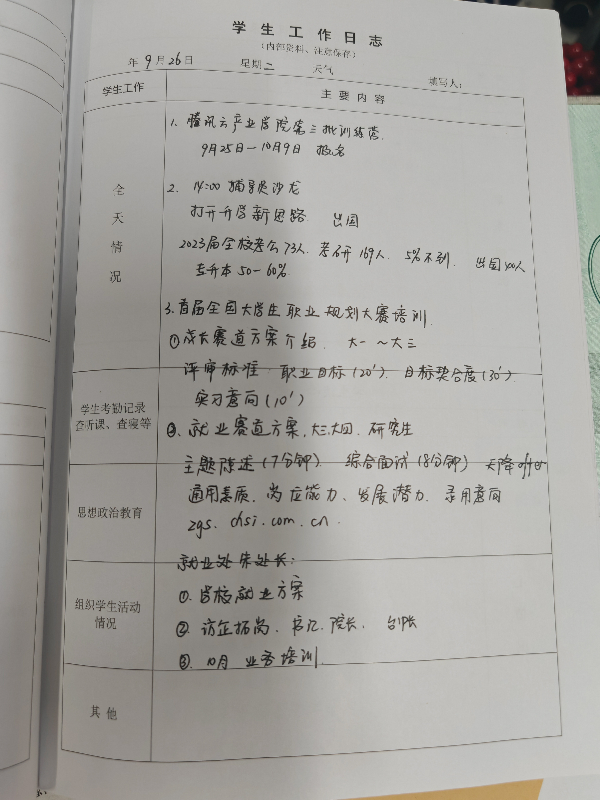 学生工作日志
（内部资料、注意保存）
年 9月26日 星期二 天气 填写人：
学生工作 主要内容
全天情况
1. 腾讯云产业学院第三批训练营.
9月25日—10月9日 报名
2. 14:00 辅导员沙龙
打开升学新思路. 出国
2023届全校考公73人. 考研169人. 5%不到. 出国400人
专升本 50-60%.
3. 首届全国大学生职业规划大赛培训.
① 成长赛道方案介绍. 大一~大三
评审标准. 职业目标(20'). 目标契合度(30').
学生考勤记录
查听课、查寝等
实习意向(10')
②. 就业赛道方案. 大三大四. 研究生
主题陈述(7分钟) 综合面试(8分钟) 天降offer
思想政治教育
通用素质. 岗位能力、发展潜力. 录用意向
zgs. chsi.com.cn.
就业处朱处长:
组织学生活动
情况
①. 皆核就业方案
②. 访企拓岗. 书记. 院长.
③. 10月 业务培训.
其他